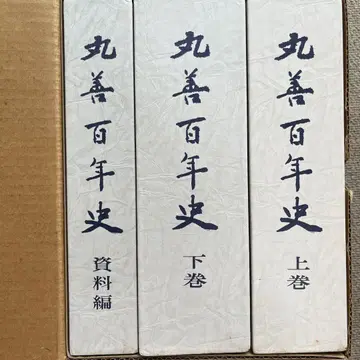 丸善百年史 上巻
丸善百年史 下巻
丸善百年史 資料編